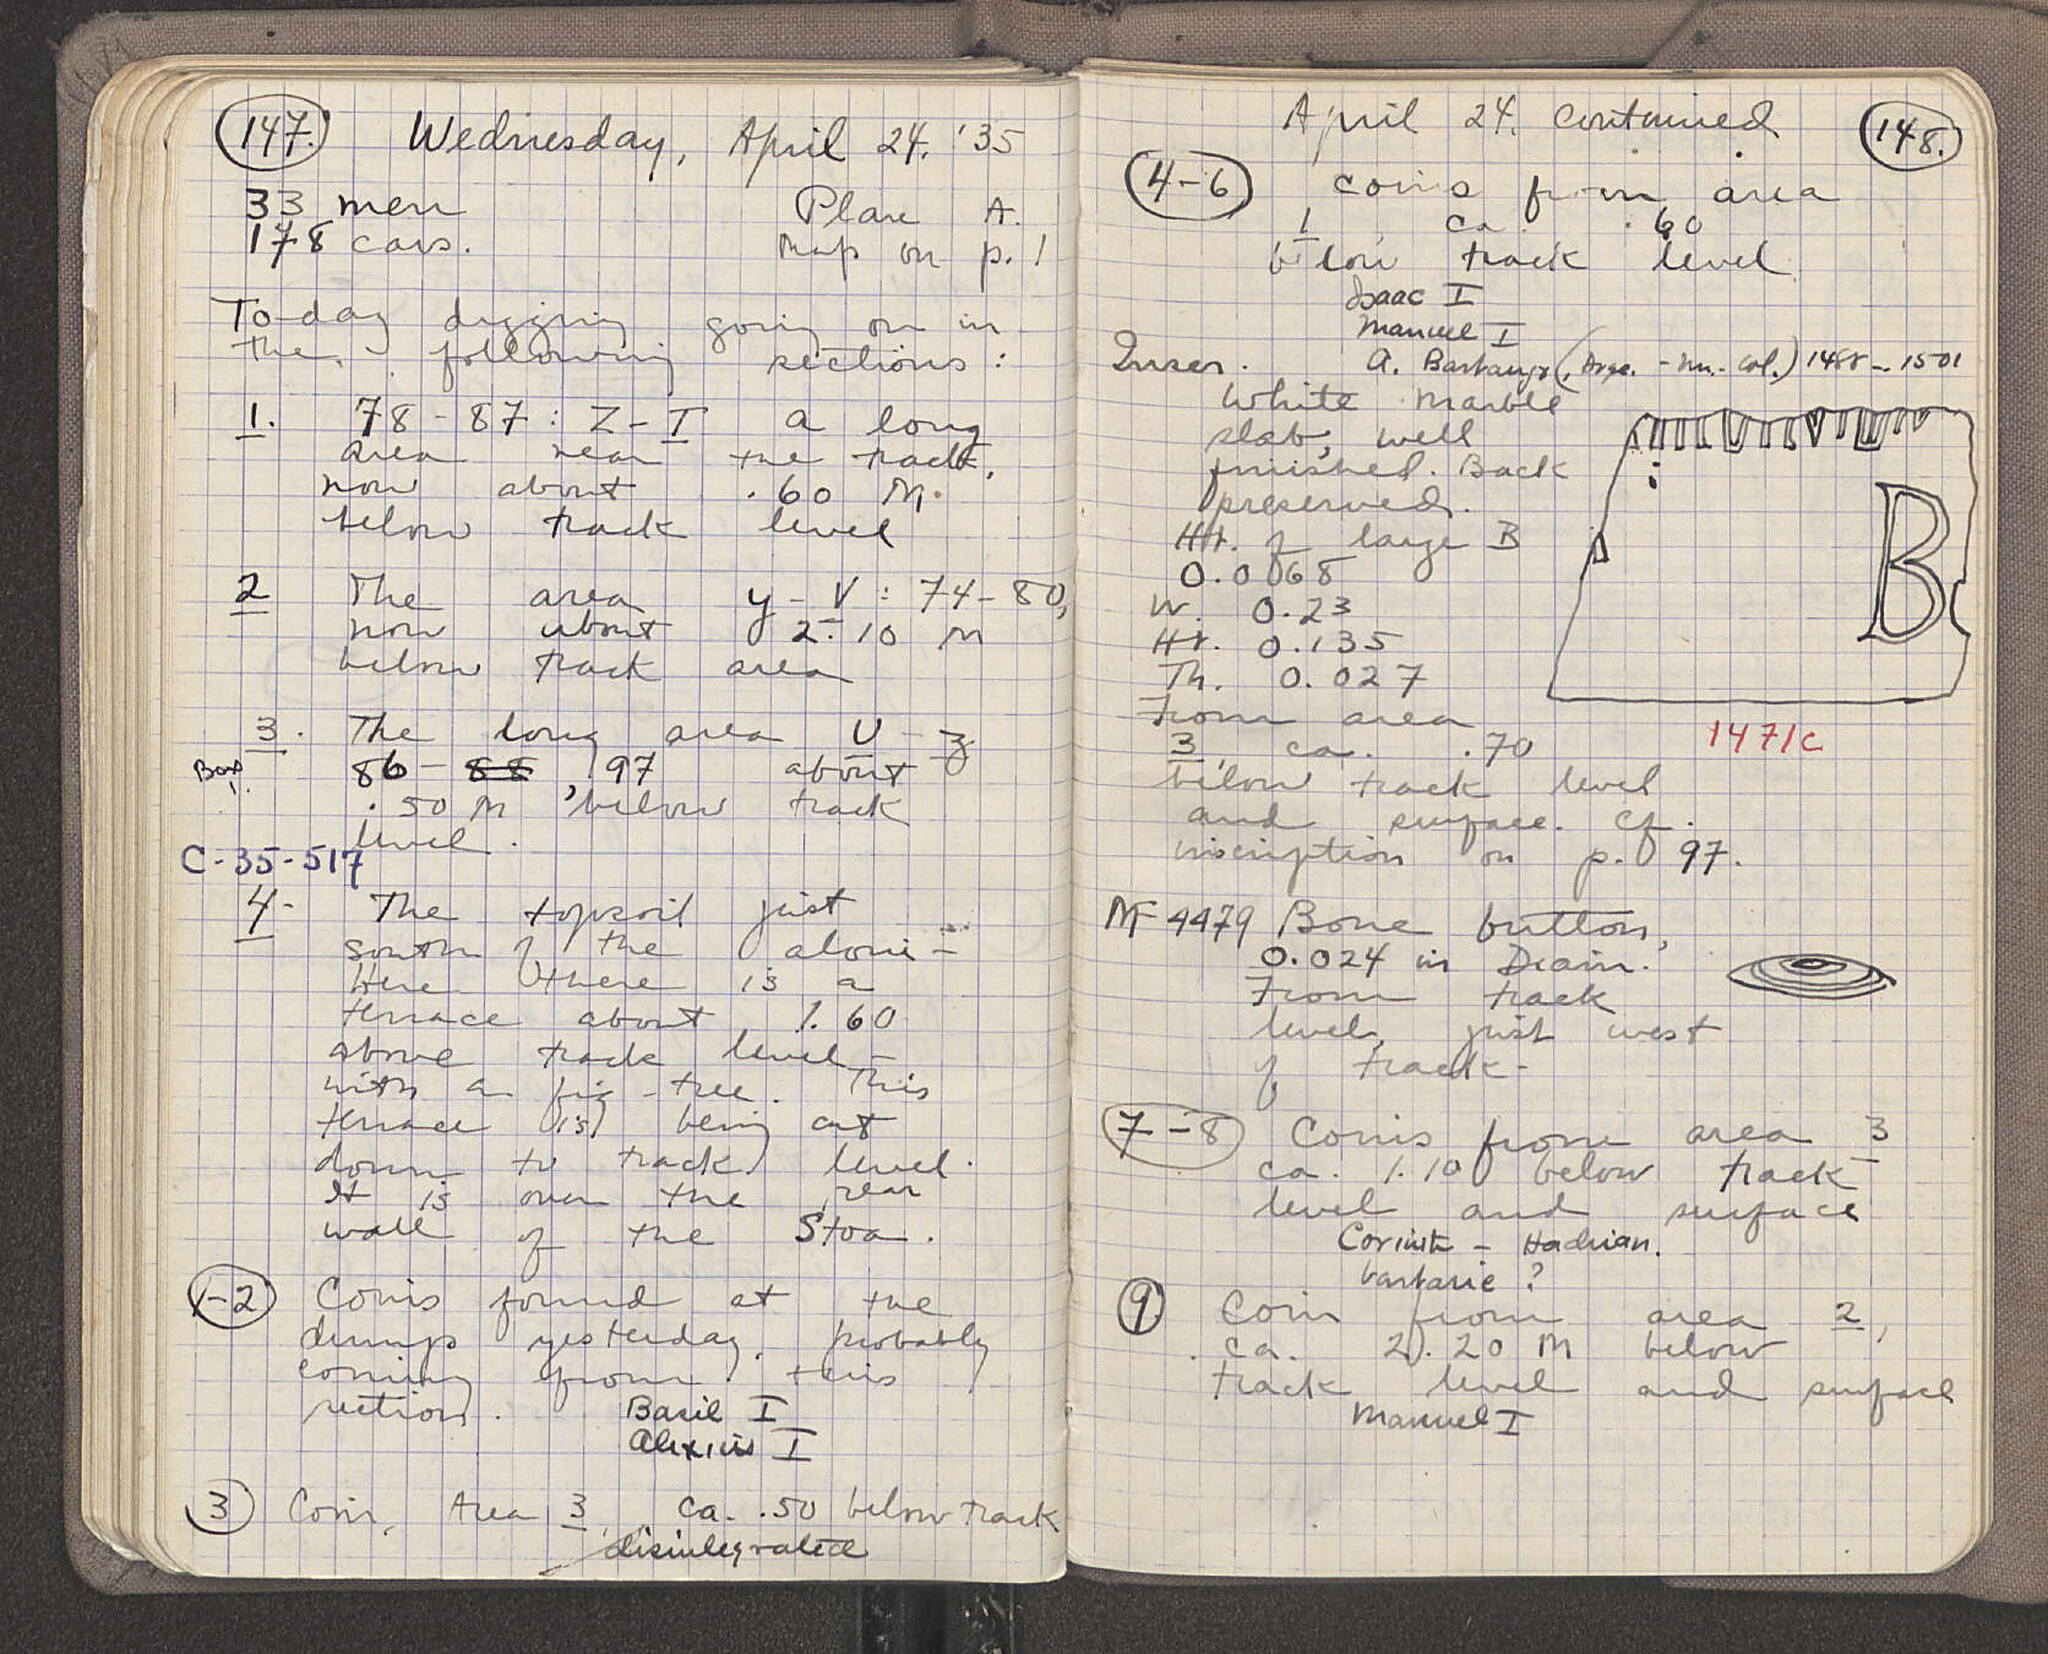 147. Wednesday, April 24. '35
33 men Place A.
178 cars. Map on p. 1
To-day digging going on in
the following sections:
1. 78-87: Z-I a long
area near the track,
now about .60 M.
below track level
2 The area y-V: 74-80,
now about 2.10 M
below track area
3. The long area U-z
86-88, 97 about
.50 M below track
level.
C-35-517
4- The topsoil just
south of the above-
Here there is a
terrace about 1.60
above track level-
with a fig-tree. This
terrace is being cut
down to track level.
It is over the rear
wall of the Stoa.
1-2 Coins found at the
dumps yesterday, probably
coming from this
section.
Basil I
Alexius I
3 Coin, Area 3, ca. .50 below track
disintegrated
April 24. continued 148.
4-6 coins from area
1, ca .60
below track level
Isaac I
Manuel I
A. Barbarigo 148 - 1501
Inscr.
White marble
slab, well
finished. Back
preserved.
Ht. of large B
0.068
W. 0.23
Ht. 0.135
Th. 0.027
From area
3, ca. .70
below track level
and surface. Cf.
inscription on p. 97.
B
1471c
MF 4479 Bone button,
0.024 in Diam.
From track
level, just west
of track-
7-8 Coins from area 3
ca. 1.10 below track
level and surface
Corinth - Hadrian.
barbaric?
9 Coin from area 2,
ca. 2.20 M below
track level and surface
Manuel I